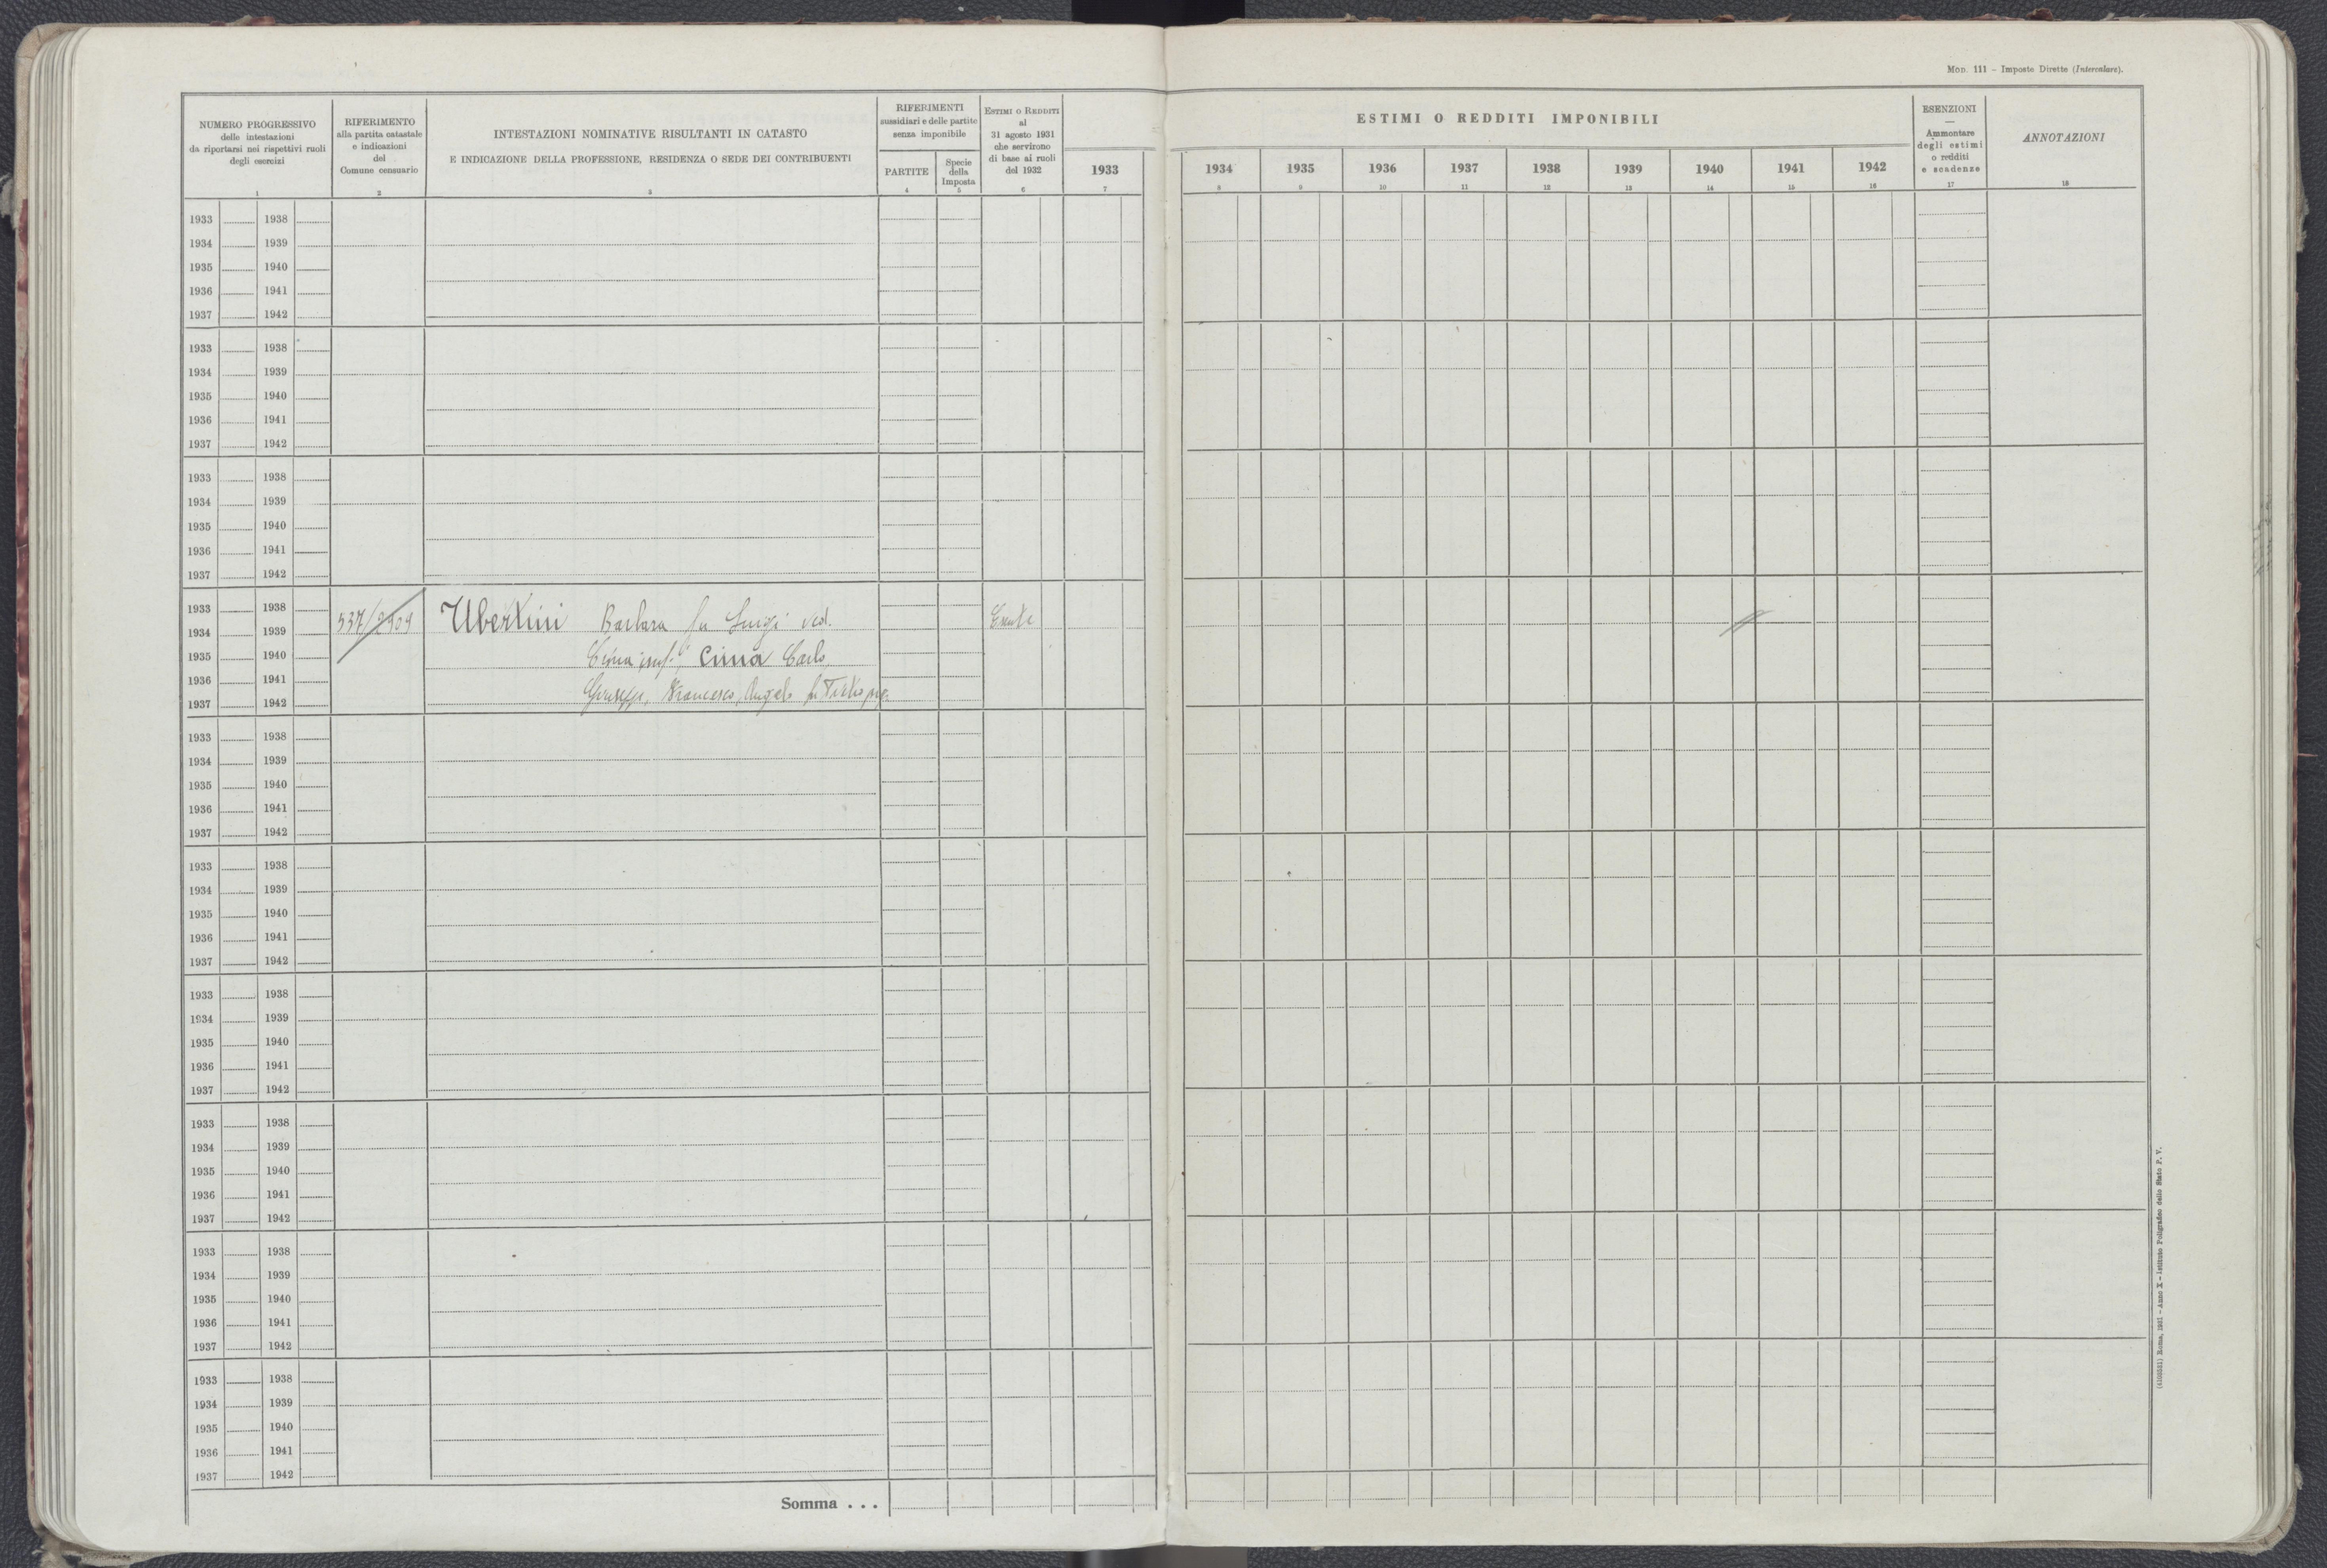 MOD. 111 – Imposte Dirette (Intercalare).
NUMERO PROGRESSIVO
delle intestazioni
da riportarsi nei rispettivi ruoli
degli esercizi
1
RIFERIMENTO
alla partita catastale
e indicazioni
del
Comune censuario
2
INTESTAZIONI NOMINATIVE RISULTANTI IN CATASTO
E INDICAZIONE DELLA PROFESSIONE, RESIDENZA O SEDE DEI CONTRIBUENTI
3
RIFERIMENTI
sussidiari e delle partite
senza imponibile
PARTITE
4
Specie
della
Imposta
5
ESTIMI O REDDITI
al
31 agosto 1931
che servirono
di base ai ruoli
del 1932
6
1933
7
ESTIMI O REDDITI IMPONIBILI
1934 1935 1936 1937 1938 1939 1940 1941 1942
8 9 10 11 12 13 14 15 16
ESENZIONI
—
Ammontare
degli estimi
o redditi
e scadenze
17
ANNOTAZIONI
18
1933 1938
1934 1939
1935 1940
1936 1941
1937 1942
1933 1938
1934 1939
1935 1940
1936 1941
1937 1942
1933 1938
1934 1939
1935 1940
1936 1941
1937 1942
1933 1938 537/ Ubertini Barbara fu Luigi ved.
1934 1939
1935 1940 Cima Carlo,
1936 1941
1937 1942 Giuseppe, Francesco, Angelo fu
1933 1938
1934 1939
1935 1940
1936 1941
1937 1942
1933 1938
1934 1939
1935 1940
1936 1941
1937 1942
1933 1938
1934 1939
1935 1940
1936 1941
1937 1942
1933 1938
1934 1939
1935 1940
1936 1941
1937 1942
1933 1938
1934 1939
1935 1940
1936 1941
1937 1942
1933 1938
1934 1939
1935 1940
1936 1941
1937 1942
Somma . . .
Roma, 1931 – Anno X – Istituto Poligrafico dello Stato P. V.